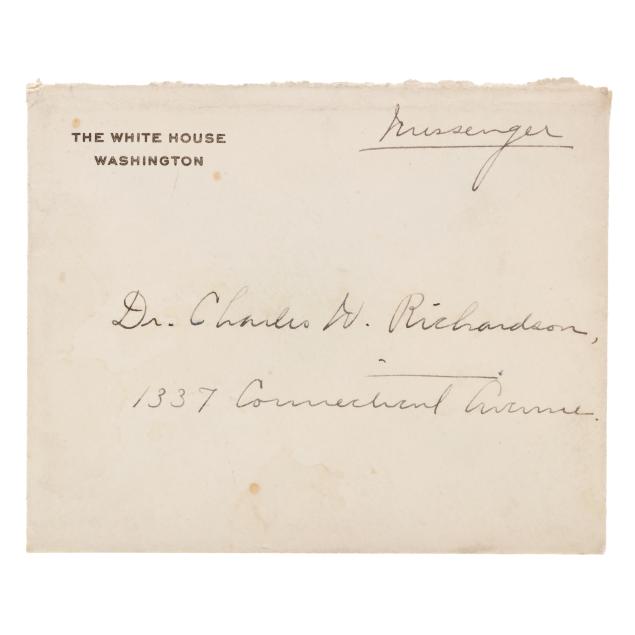 THE WHITE HOUSE
WASHINGTON
Messenger
Dr. Charles W. Richardson,
1337 Connecticut Avenue.